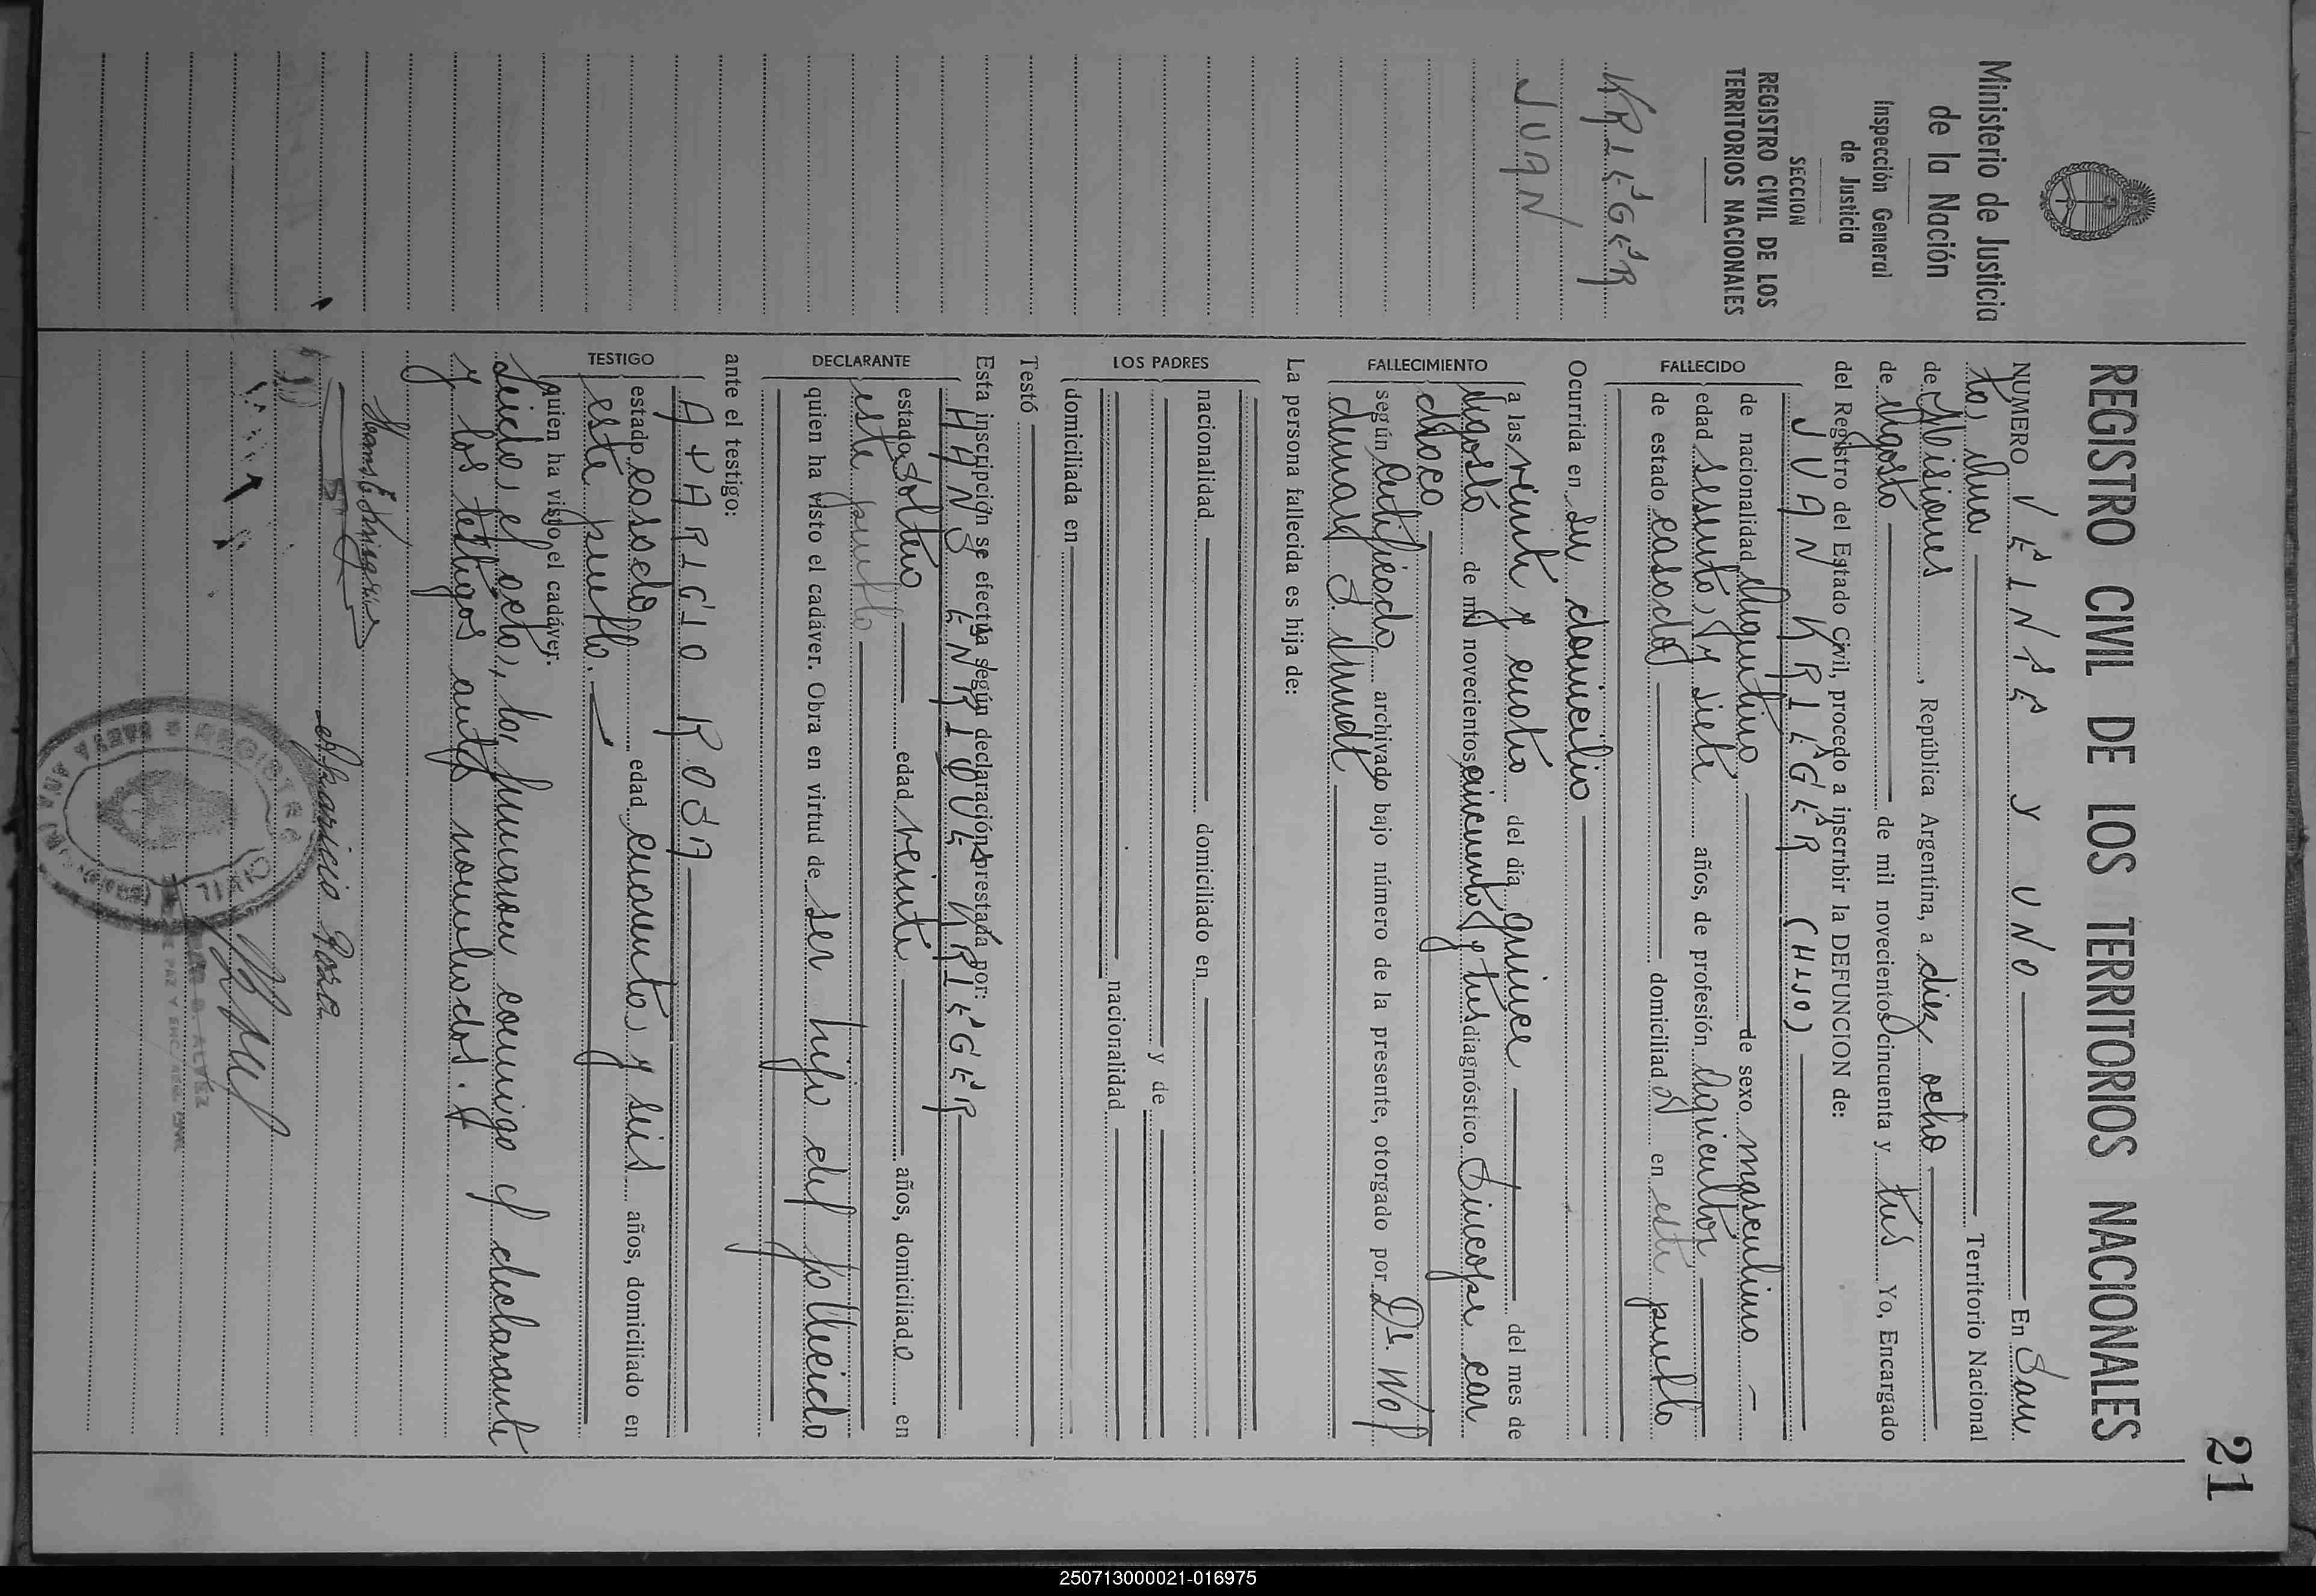 21
REGISTRO CIVIL DE LOS TERRITORIOS NACIONALES
Ministerio de Justicia
de la Nación
Inspección General
de Justicia
SECCION
REGISTRO CIVIL DE LOS
TERRITORIOS NACIONALES
KRIEGER
JUAN
NUMERO VEINTE Y UNO En San
ta Ana Territorio Nacional
de Misiones, República Argentina, a diez ocho
de Agosto de mil novecientos cincuenta y tres Yo, Encargado
del Registro del Estado Civil, procedo a inscribir la DEFUNCION de:
FALLECIDO
JUAN KRIEGER (HIJO)
de nacionalidad Argentino de sexo masculino
edad sesenta y siete años, de profesión Agricultor
de estado casado domiciliado en este pueblo
Ocurrida en su domicilio
FALLECIMIENTO
a las veinte y cuatro del día quince del mes de
Agosto de mil novecientos cincuenta y tres diagnóstico Sincope car
diaco
según Certificado archivado bajo número de la presente, otorgado por Dr. Wol
demar
La persona fallecida es hija de:
LOS PADRES
nacionalidad domiciliado en
y de
nacionalidad
domiciliada en
Testó
Esta inscripción se efectúa según declaración prestada por:
DECLARANTE
HANS ENRIQUE KRIEGER
estado soltero edad veinte años, domiciliado en
este pueblo
quien ha visto el cadáver. Obra en virtud de ser hijo del fallecido
ante el testigo:
TESTIGO
APARICIO ROSA
estado casado edad cuarenta y seis años, domiciliado en
este pueblo.
quien ha visto el cadáver.
Leida el acta, la firmaron conmigo el declarante
y los testigos antes nombrados.
Aparicio Rosa
REGISTRO CIVIL
SANTA ANA
250713000021-016975